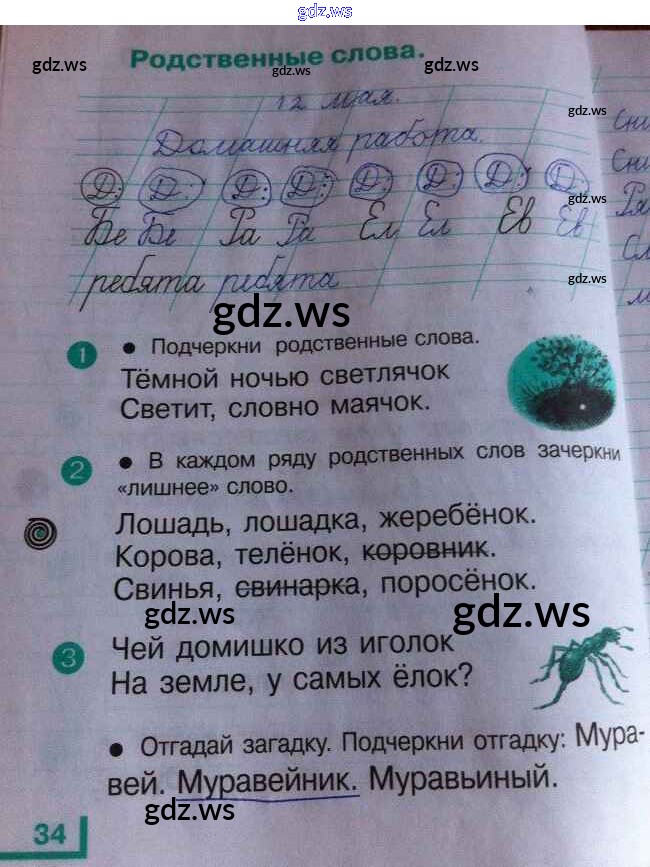 gdz.ws
Родственные слова.
gdz.ws gdz.ws gdz.ws
12 мая.
gdz.ws
Домашняя работа.
Д: Д: Д: Д: Д: Д: Д: Д:
gdz.ws
Бе Бе Ра Ра Ел Ел Ев Ев
ребята ребята
gdz.ws
gdz.ws
1 • Подчеркни родственные слова.
Тёмной ночью светлячок
Светит, словно маячок.
2 • В каждом ряду родственных слов зачеркни
«лишнее» слово.
Лошадь, лошадка, жеребёнок.
Корова, телёнок, коровник.
Свинья, свинарка, поросёнок.
gdz.ws gdz.ws
3 Чей домишко из иголок
На земле, у самых ёлок?
• Отгадай загадку. Подчеркни отгадку: Мура-
вей. Муравейник. Муравьиный.
gdz.ws
34